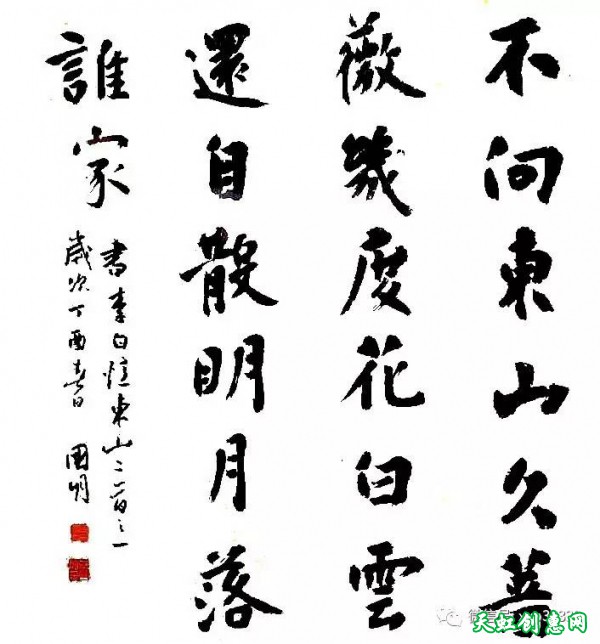 不向東山久薔
薇幾度花白雲
還自散明月落
誰家
書李白憶東山二首之一
歲次丁酉春日 國明
天虹创意网